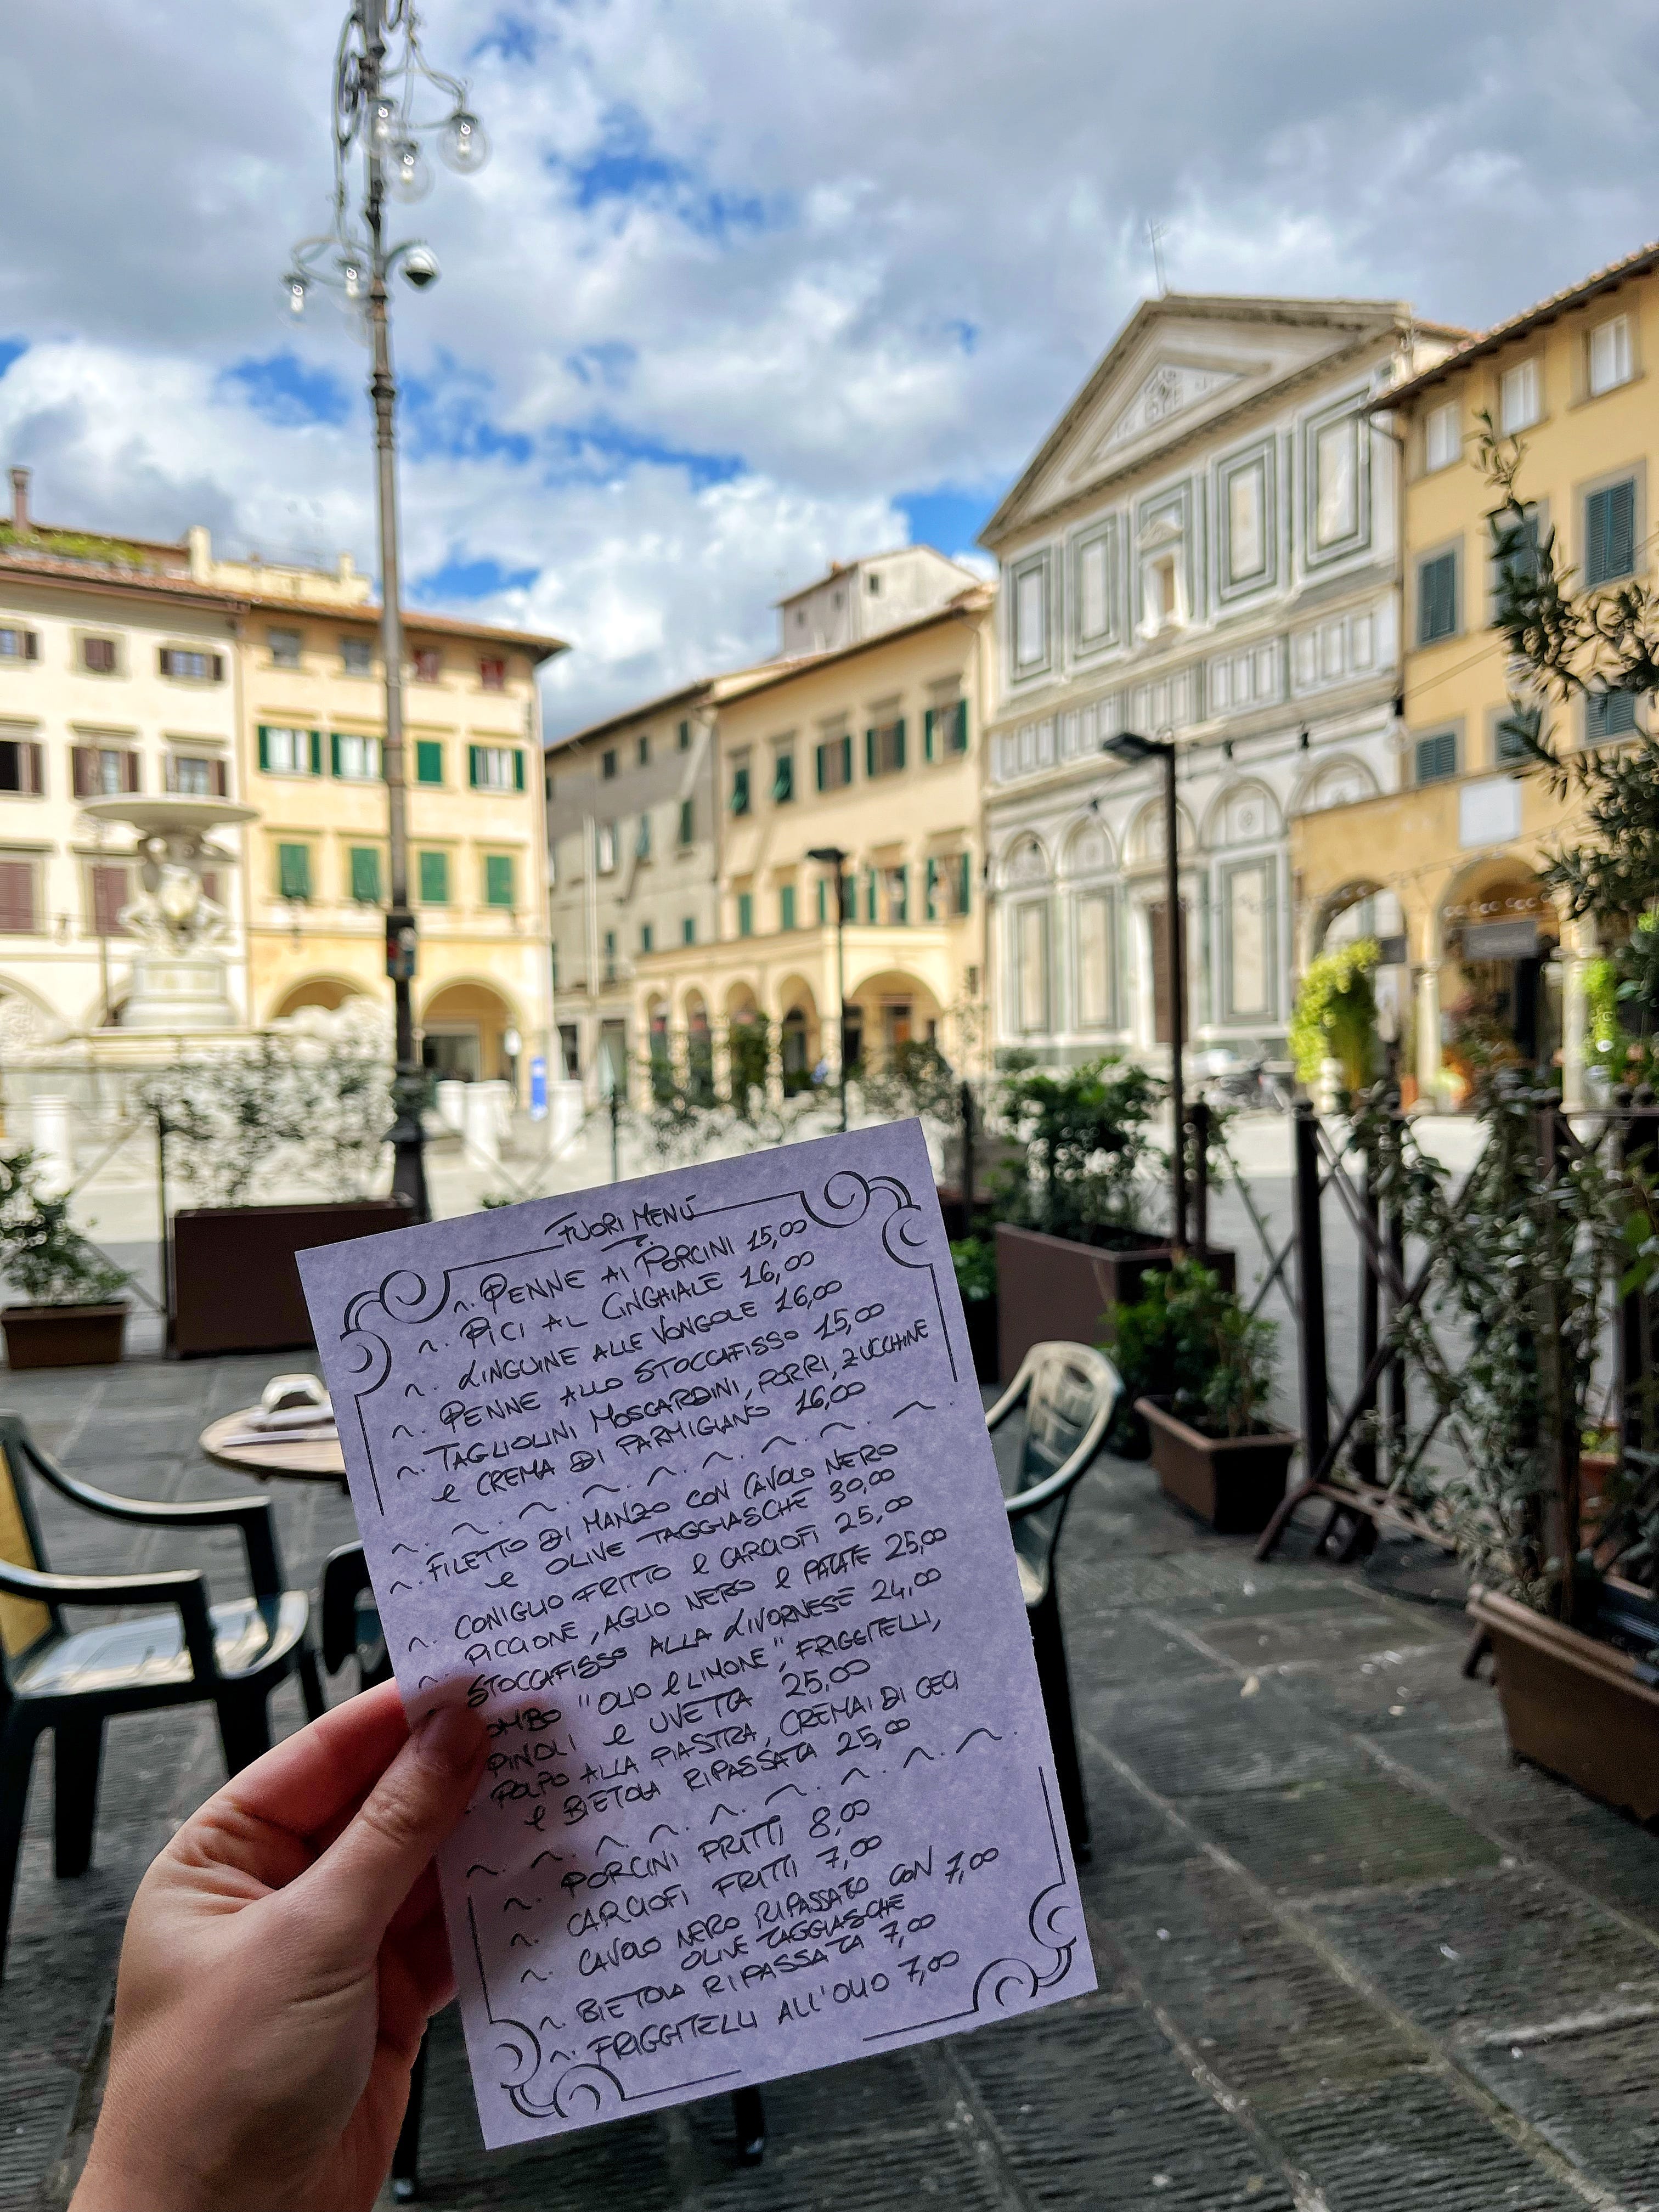 FUORI MENÚ
~. PENNE AI PORCINI 15,00
~. PICI AL CINGHIALE 16,00
~. LINGUINE ALLE VONGOLE 16,00
~. PENNE ALLO STOCCAFISSO 15,00
~. TAGLIOLINI MOSCARDINI, PORRI, ZUCCHINE
e CREMA DI PARMIGIANO 16,00
~. FILETTO DI MANZO CON CAVOLO NERO
e OLIVE TAGGIASCHE 30,00
~. CONIGLIO FRITTO e CARCIOFI 25,00
~. PICCIONE, AGLIO NERO e PATATE 25,00
STOCCAFISSO ALLA LIVORNESE 24,00
OMBO "OLIO e LIMONE", FRIGGITELLI,
PINOLI e UVETTA 25,00
POLPO ALLA PIASTRA, CREMA DI CECI
e BIETOLA RIPASSATA 25,00
~. PORCINI FRITTI 8,00
~. CARCIOFI FRITTI 7,00
~. CAVOLO NERO RIPASSATO CON 7,00
OLIVE TAGGIASCHE
~. BIETOLA RIPASSATA 7,00
~. FRIGGITELLI ALL'OLIO 7,00